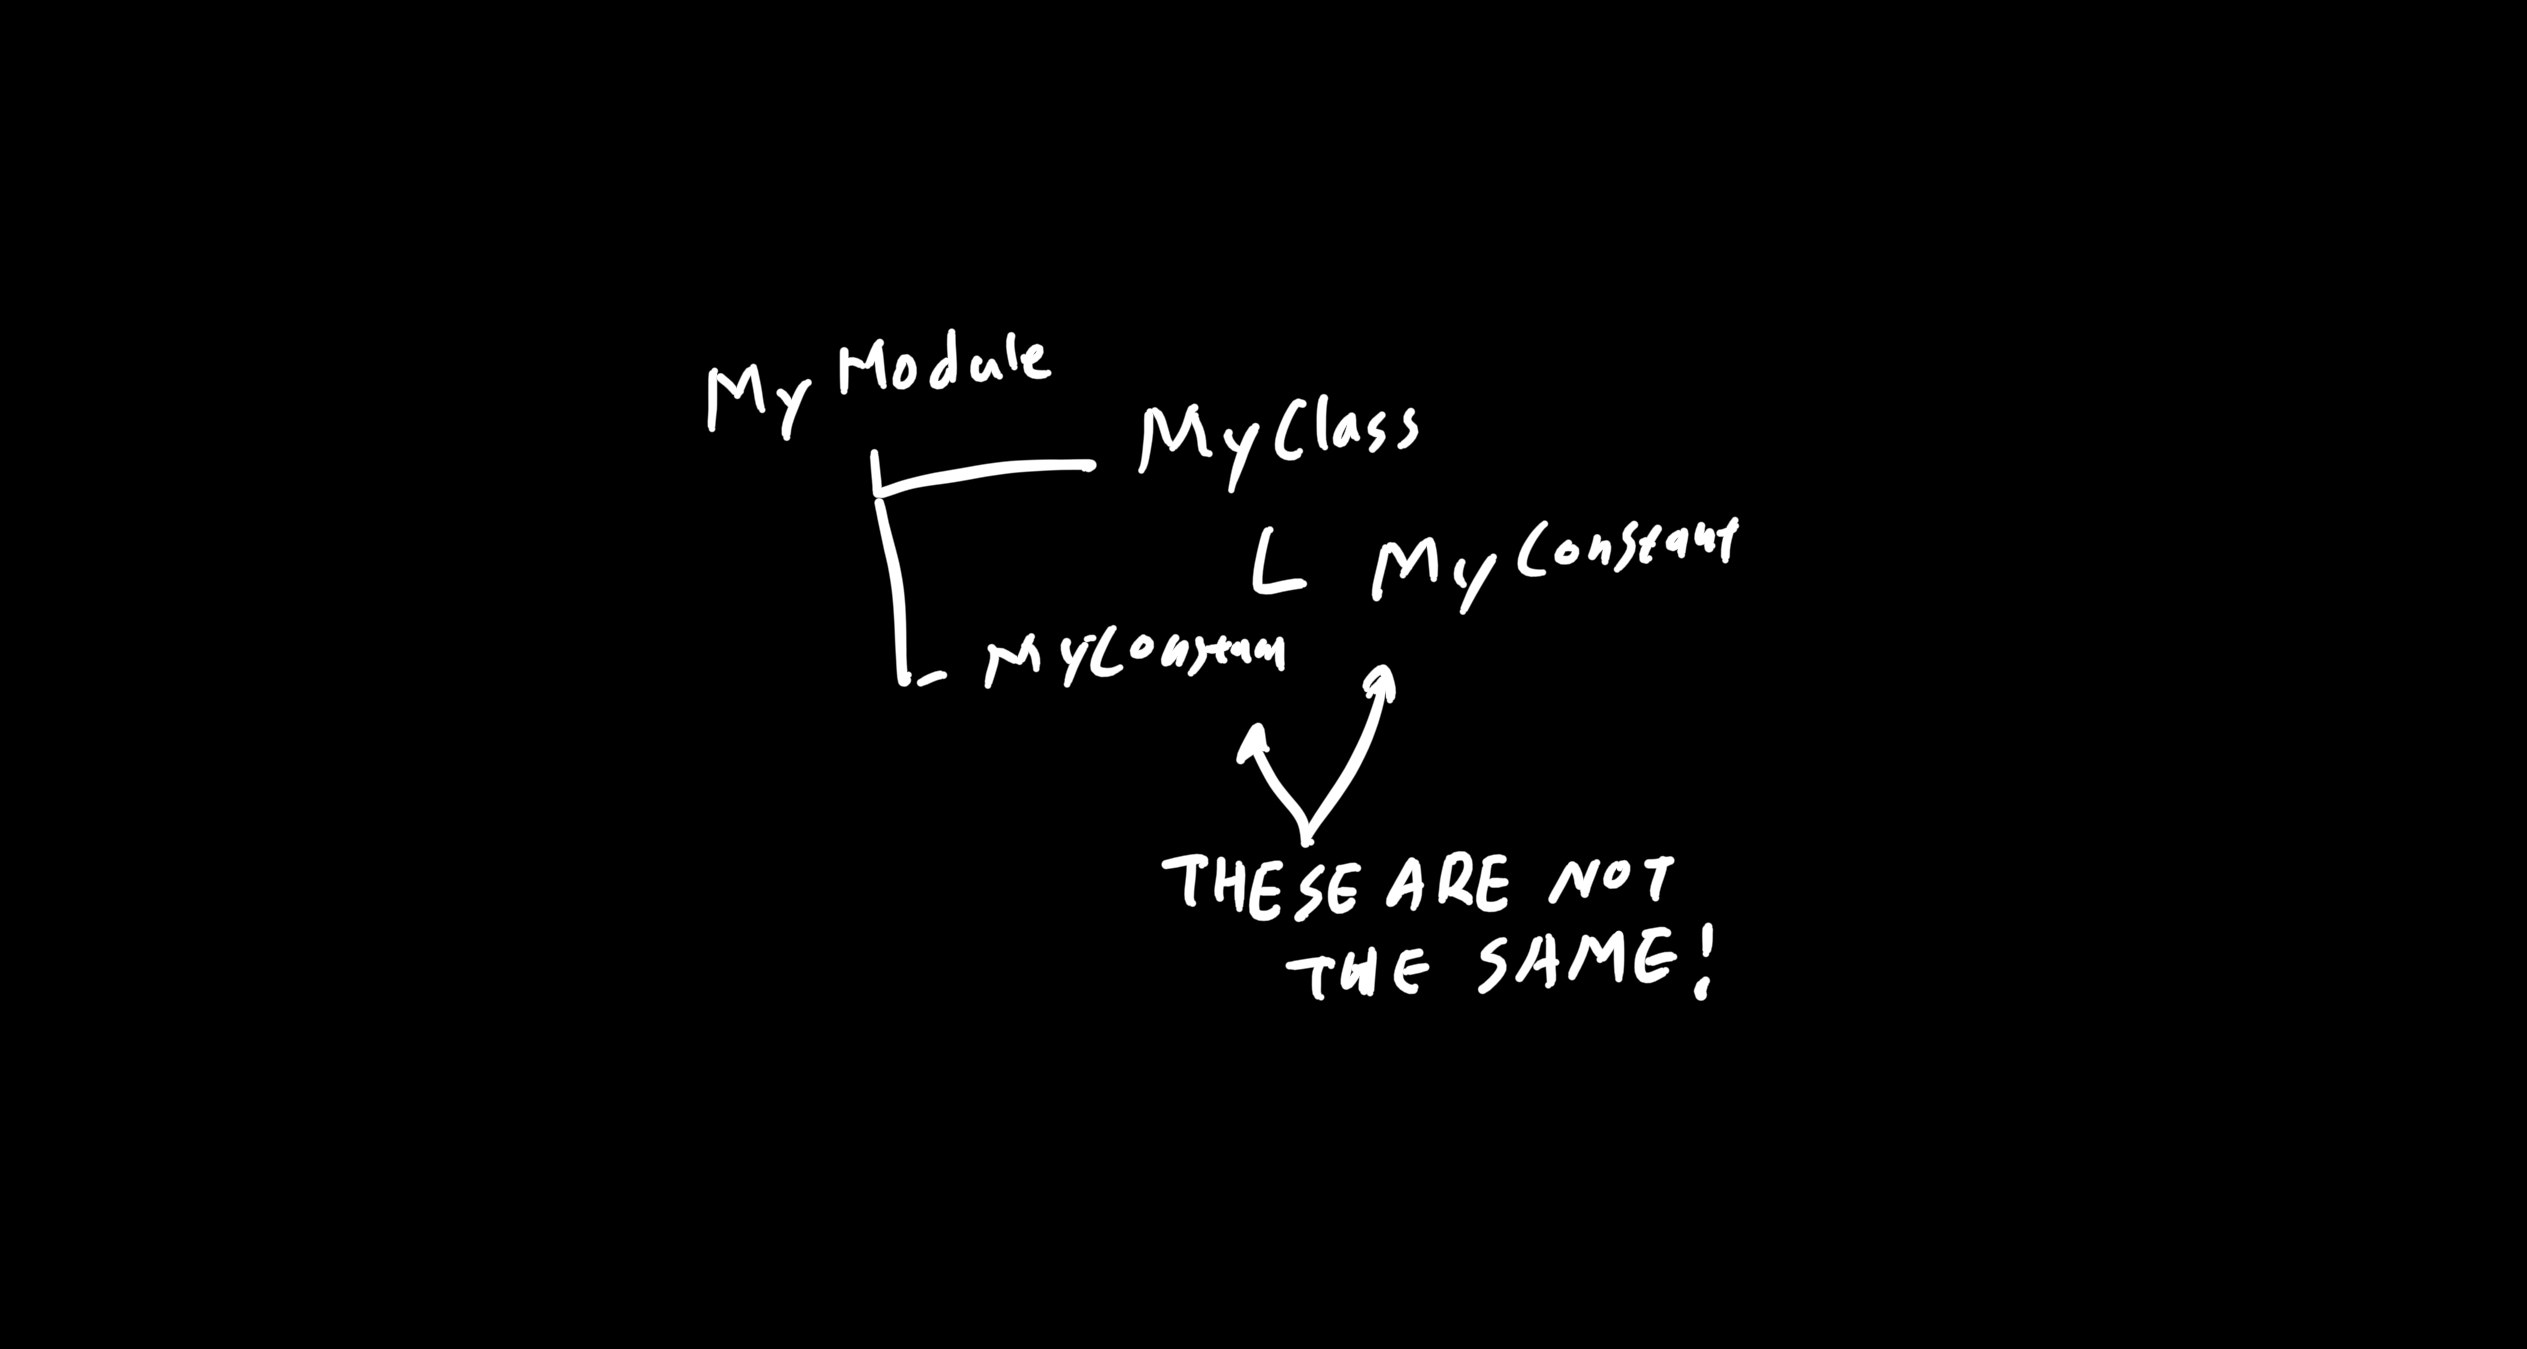 MyModule
MyClass
MyConstant
MyConstan
THESE ARE NOT
THE SAME!